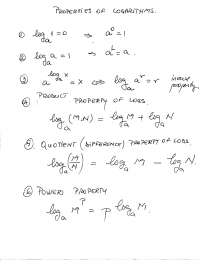 PROPERTIES OF LOGARITHMS.
① log_a 1 = 0 ⇒ a⁰ = 1
② log_a a = 1 ⇒ a¹ = a.
③ a^(log_a x) = x ⇔ log_a a^r = r inverse property
④ PRODUCT PROPERTY OF LOGS
log_a (M.N) = log_a M + log_a N
⑤ QUOTIENT (DIFFERENCE) PROPERTY OF LOGS
log_a (M/N) = log_a M - log_a N.
⑥ POWERS PROPERTY
log_a M^p = p log_a M.